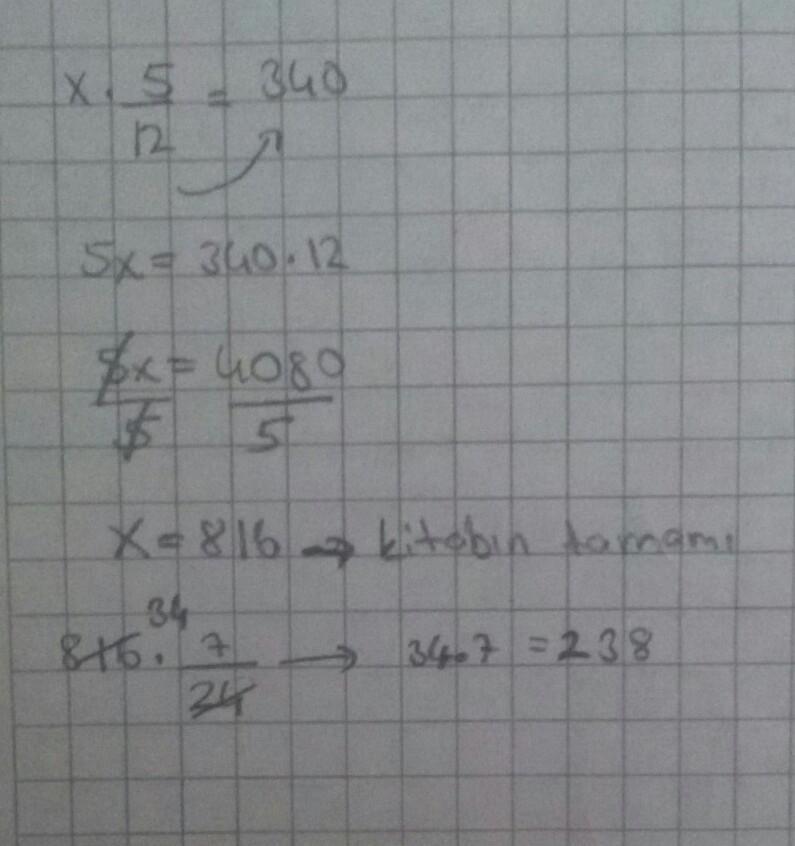 x . 5/12 = 340
5x = 340.12
5x/5 = 4080/5
x = 816 → kitabın tamamı
816 . 34 7/24 → 34.7 = 238